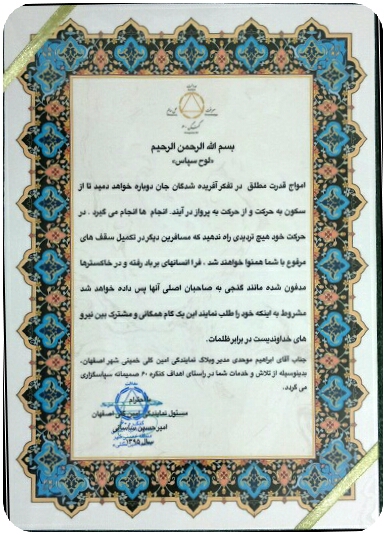 بسم الله الرحمن الرحیم
«لوح سپاس»
امواج قدرت مطلق در تفکر آفریده شدگان جان دوباره خواهد دمید تا از
سکون به حرکت و از حرکت به پرواز در آیند. انجام ها انجام می گیرد . در
حرکت خود هیچ تردیدی راه ندهید که مسافرین دیگر در تکمیل سقف های
مرفوع با شما همنوا خواهند شد . فرا انسانهای بر باد رفته و در خاکسترها
مدفون شده مانند گنجی به صاحبان اصلی آنها پس داده خواهد شد
مشروط به اینکه خود را طلب نمایند این یک گام همگانی و مشترک بین نیرو
های خداوندیست در برابر ظلمات.
جناب آقای ابراهیم موحدی مدیر وبلاگ نمایندگی امین گلی خمینی شهر اصفهان،
بدینوسیله از تلاش و خدمات شما در راستای اهداف کنگره ۶۰ صمیمانه سپاسگزاری
می گردد.
مسئول نمایندگی اصفهان
امیرحسین
سال ۱۳۹۵